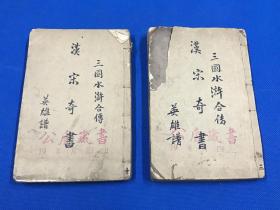 三國水滸合傳
漢宋奇書
英雄譜
三國水滸合傳
漢宋奇書
英雄譜